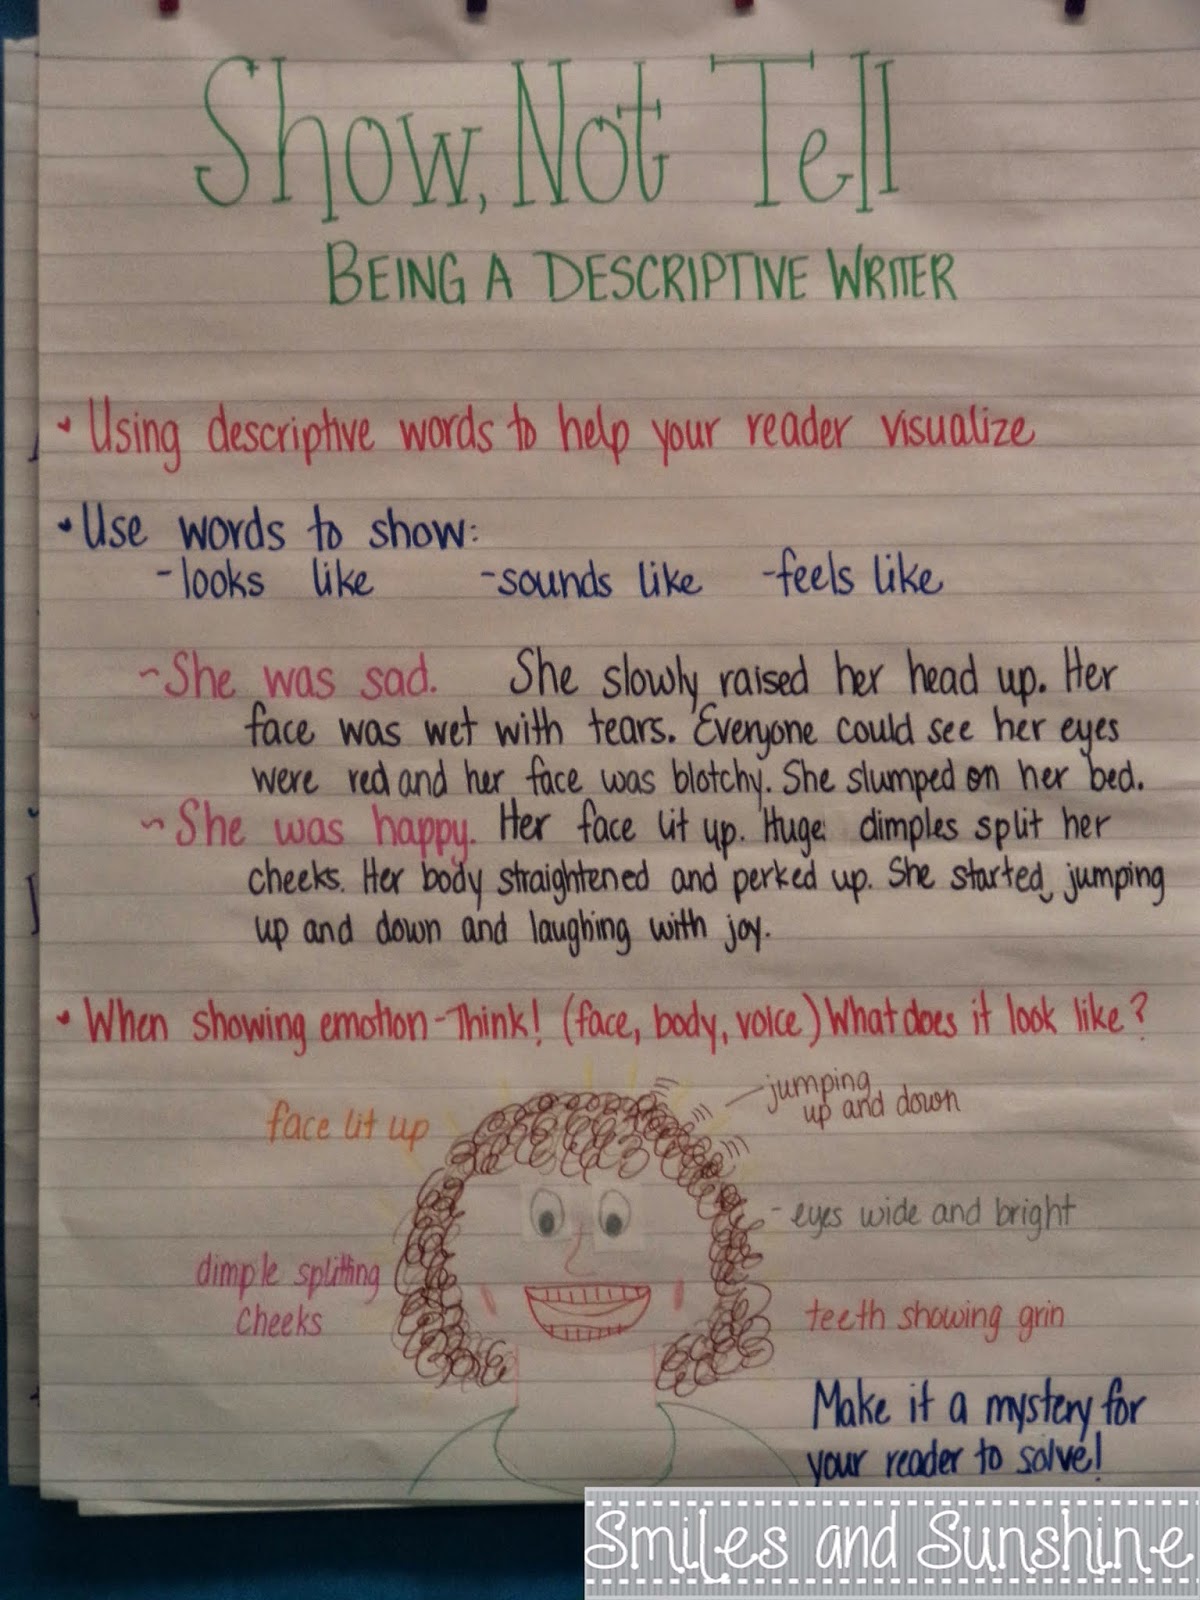 Show, Not Tell
BEING A DESCRIPTIVE WRITER
• Using descriptive words to help your reader visualize
• Use words to show:
-looks like -sounds like -feels like
~She was sad. She slowly raised her head up. Her
face was wet with tears. Everyone could see her eyes
were red and her face was blotchy. She slumped on her bed.
~She was happy. Her face lit up. Huge dimples split her
cheeks. Her body straightened and perked up. She started jumping
up and down and laughing with joy.
• When showing emotion-Think! (face, body, voice) What does it look like?
jumping
up and down
face lit up
- eyes wide and bright
dimple splitting
cheeks
teeth showing grin
Make it a mystery for
your reader to solve!
Smiles and Sunshine